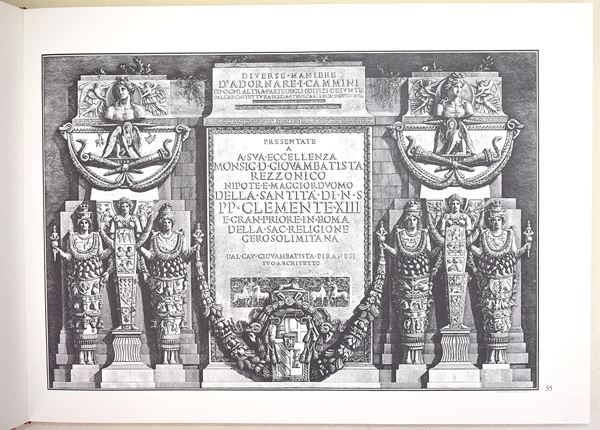 DIVERSE · MANIERE
D'ADORNARE · I · CAMMINI
ED · OGNI · ALTRA · PARTE · DEGLI · EDIFIZI · DESUNTE
DALL' ARCHITETTURA · EGIZIA · ETRUSCA · E · GRECA
PRESENTATE
A
A · SVA · ECCELLENZA
MONSIG · D · GIOVAMBATISTA
REZZONICO
NIPOTE · E · MAGGIORDVOMO
DELLA · SANTITÀ · DI · N · S
PP · CLEMENTE · XIII
E · GRAN · PRIORE · IN · ROMA
DELLA · SAC · RELIGIONE
GEROSOLIMITANA
DAL · CAV · GIOVAMBATISTA · PIRANESI
SVO · ARCHITETTO
35